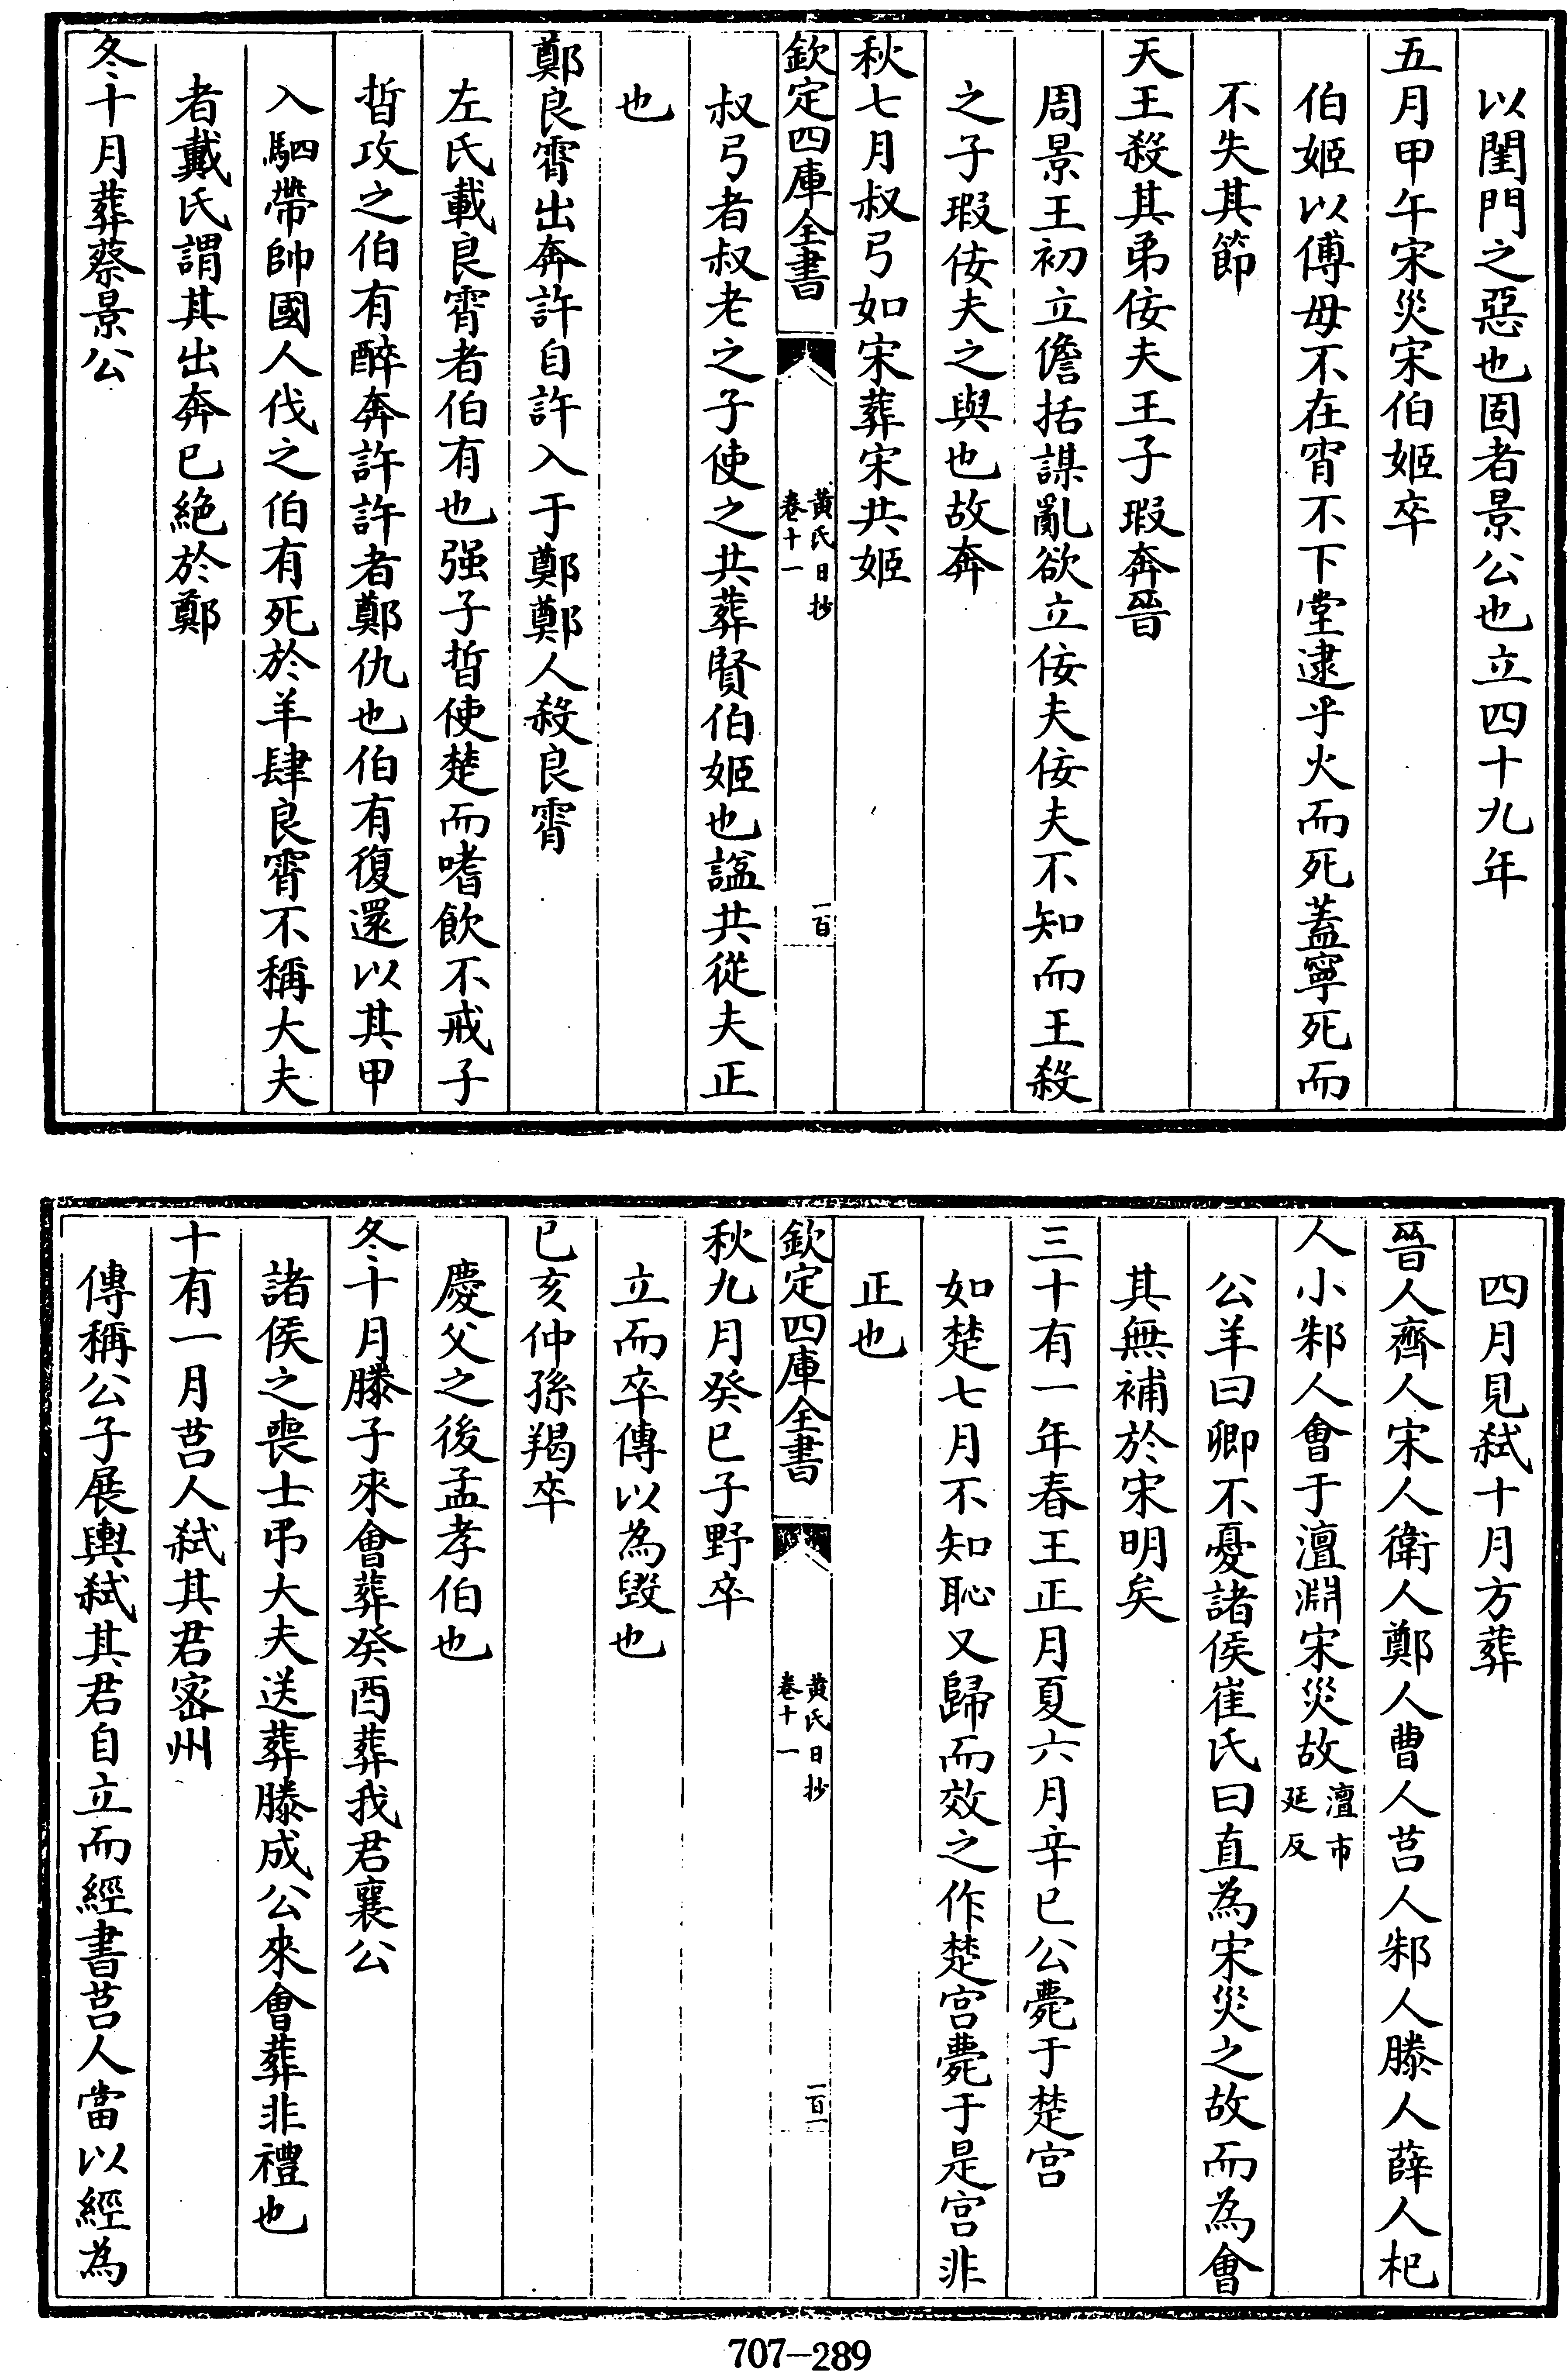 以閨門之惡也固者景公也立四十九年
五月甲午宋災宋伯姬卒
伯姬以傅母不在宵不下堂逮乎火而死蓋寧死而
不失其節
天王殺其弟佞夫王子瑕奔晉
周景王初立儋括謀亂欲立佞夫佞夫不知而王殺
之子瑕佞夫之與也故奔
秋七月叔弓如宋葬宋共姬
欽定四庫全書
黄氏日抄
卷十一
一百
叔弓者叔老之子使之共葬賢伯姬也諡共從夫正
也
鄭良霄出奔許自許入于鄭鄭人殺良霄
左氏載良霄者伯有也强子晳使楚而嗜飲不戒子
晳攻之伯有醉奔許許者鄭仇也伯有復還以其甲
入駟帶帥國人伐之伯有死於羊肆良霄不稱大夫
者戴氏謂其出奔已絶於鄭
冬十月葬蔡景公
四月見弑十月方葬
晉人齊人宋人衛人鄭人曹人莒人邾人滕人薛人杞
人小邾人會于澶淵宋災故澶市延反
公羊曰卿不憂諸侯崔氏曰直為宋災之故而為會
其無補於宋明矣
三十有一年春王正月夏六月辛巳公薨于楚宫
如楚七月不知恥又歸而效之作楚宫薨于是宫非
正也
欽定四庫全書
黄氏日抄
卷十一
一百一
秋九月癸巳子野卒
立而卒傳以為毀也
己亥仲孫羯卒
慶父之後孟孝伯也
冬十月滕子來會葬癸酉葬我君襄公
諸侯之喪士弔大夫送葬滕成公來會葬非禮也
十有一月莒人弑其君密州
傳稱公子展輿弑其君自立而經書莒人當以經為
707-289